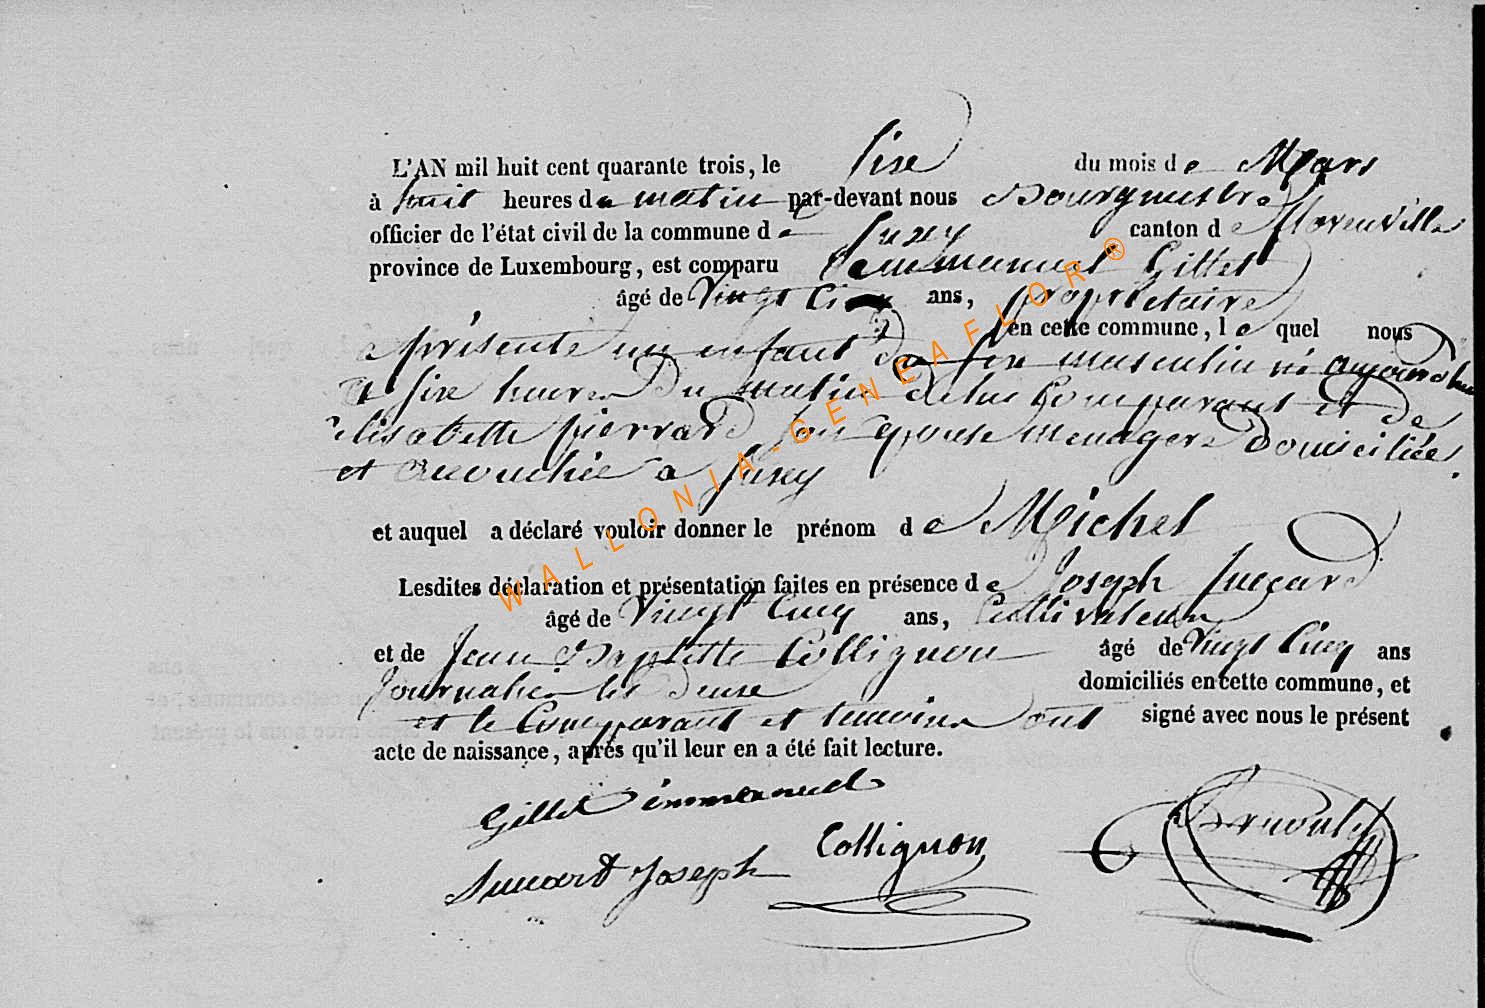 L'AN mil huit cent quarante trois, le sixe du mois de Mars
à huit heures du matin par-devant nous Bourgmestre
officier de l'état civil de la commune de Juzey canton de
province de Luxembourg, est comparu Gillet
âgé de Vingt Cinq ans, proprietaire
en cette commune, le quel nous
a présenté un enfant de sexe masculin né aujourdhui
a sixe heures du matin de lui Comparant et de
elisabette pierrard son epouse menagere domiciliée
et accouchée a Juzey
et auquel a déclaré vouloir donner le prénom de Michel
Lesdites déclaration et présentation faites en présence de Joseph
âgé de Vingt Cinq ans, Cultivateur
et de Jean Baptiste Collignon âgé de Vingt Cinq ans
Journalier les deux domiciliés en cette commune, et
et le Comparant et temoins ont signé avec nous le présent
acte de naissance, après qu'il leur en a été fait lecture.
Gillet emmanuel
Collignon
Joseph
WALLONIA-GENEAFLOR®